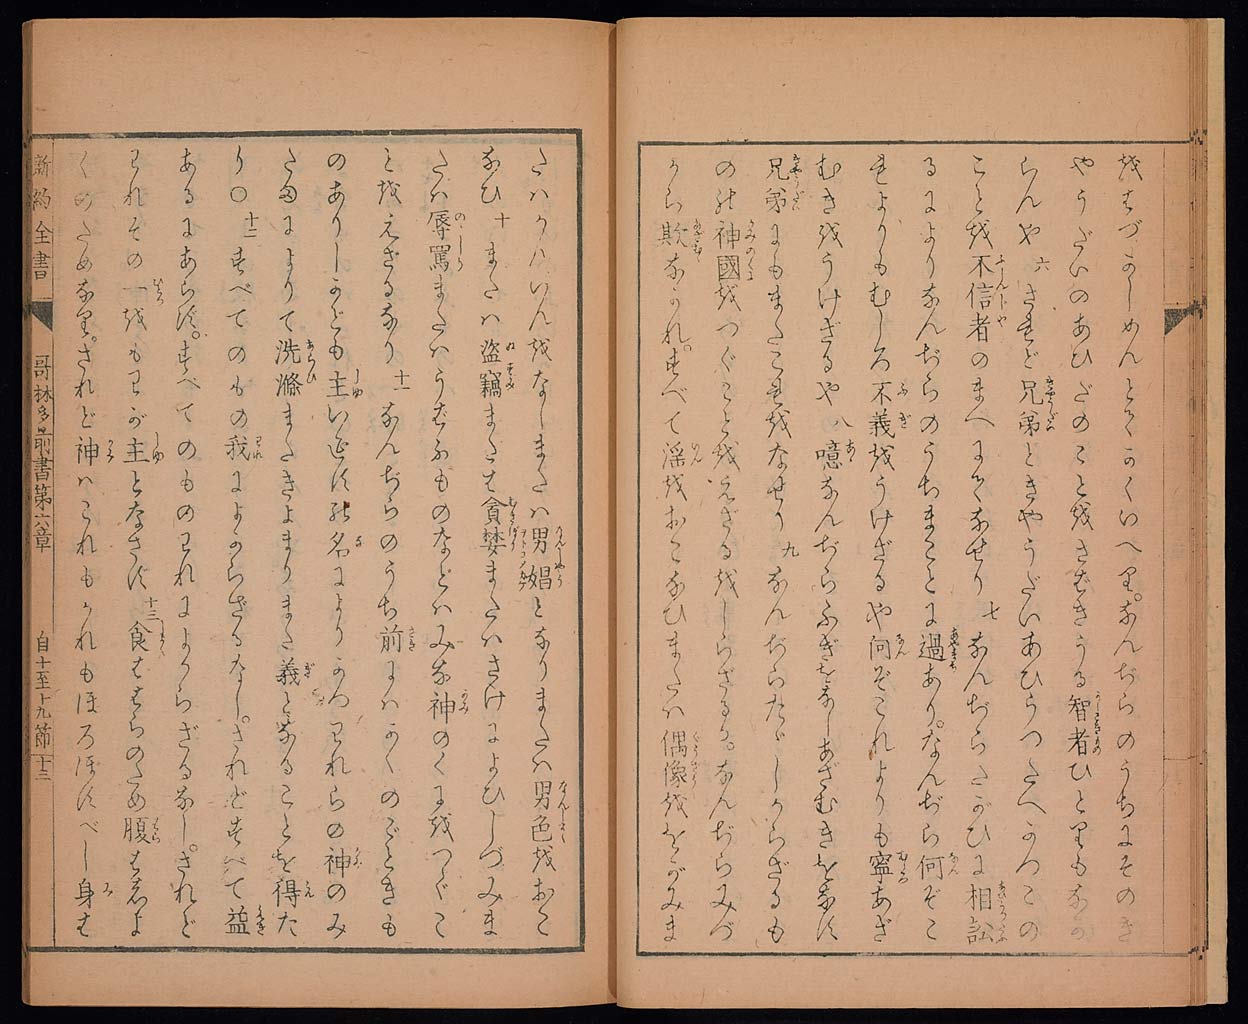 をはづかしめんとてかくいへり。なんぢらのうちにそのき
やうだいのあひだのことをさばきうる智者ひとりもなか
らんや 六 されど兄弟ときやうだいあひうつたへかつこの
ことを不信者のまへにてなせり 七 なんぢらたがひに相訟
るによりなんぢらのうちまことに過あり。なんぢら何ぞこ
れよりもむしろ不義をうけざるや何ぞこれよりも寧あざ
むきをうけざるや 八 噫なんぢらふぎをなしあざむきをなす
兄弟にもまたこれをなせり 九 なんぢらたゞしからざるも
の神國をつぐことをえざるをしらざるか。なんぢらみづ
から欺なかれ。すべて淫をおこなひまたハ偶像ををがみま
たハかんいんをなしまたハ男娼となりまたハ男色をおこ
なひ 十 またハ盗竊または貪婪またハさけによひしづみま
たハ辱罵またハうばふものなどハみな神のくにをつぐこ
とをえざるなり 十一 なんぢらのうち前にハかくのごときも
のありしかども主いえすの名によりかつわれらの神のみ
たまによりて洗滌またきよまりまた義となることを得た
り〇 十二 すべてのもの我によからざるなし。されどすべて益
あるにあらず。すべてのものわれによからざるなし。されど
われその一をもわが主となさず 十三 食ははらのため腹はしよ
くのためなり。されど神ハこれもかれもほろぼすべし身は
新約全書
哥林多前書第六章
自十至十九節
十三